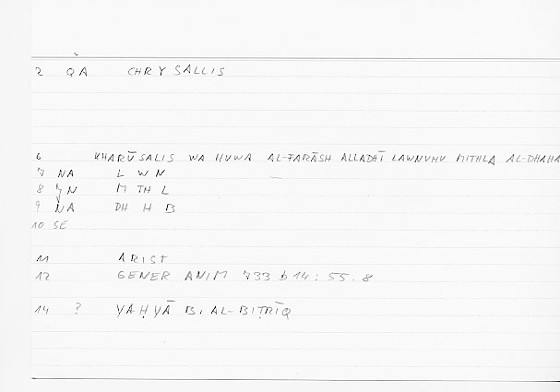 2 QA CHRYSALLIS
6 KHARŪSALIS WA HUWA AL-FARĀSH ALLADHĪ LAWNUHU MITHLA AL-DHAHA
7 NA L W N
8 YN M TH L
9 NA DH H B
10 SE
11 ARIST
12 GENER ANIM 733 b 14 : 55.8
14 ? YAḤYĀ B. AL-BIṬRĪQ